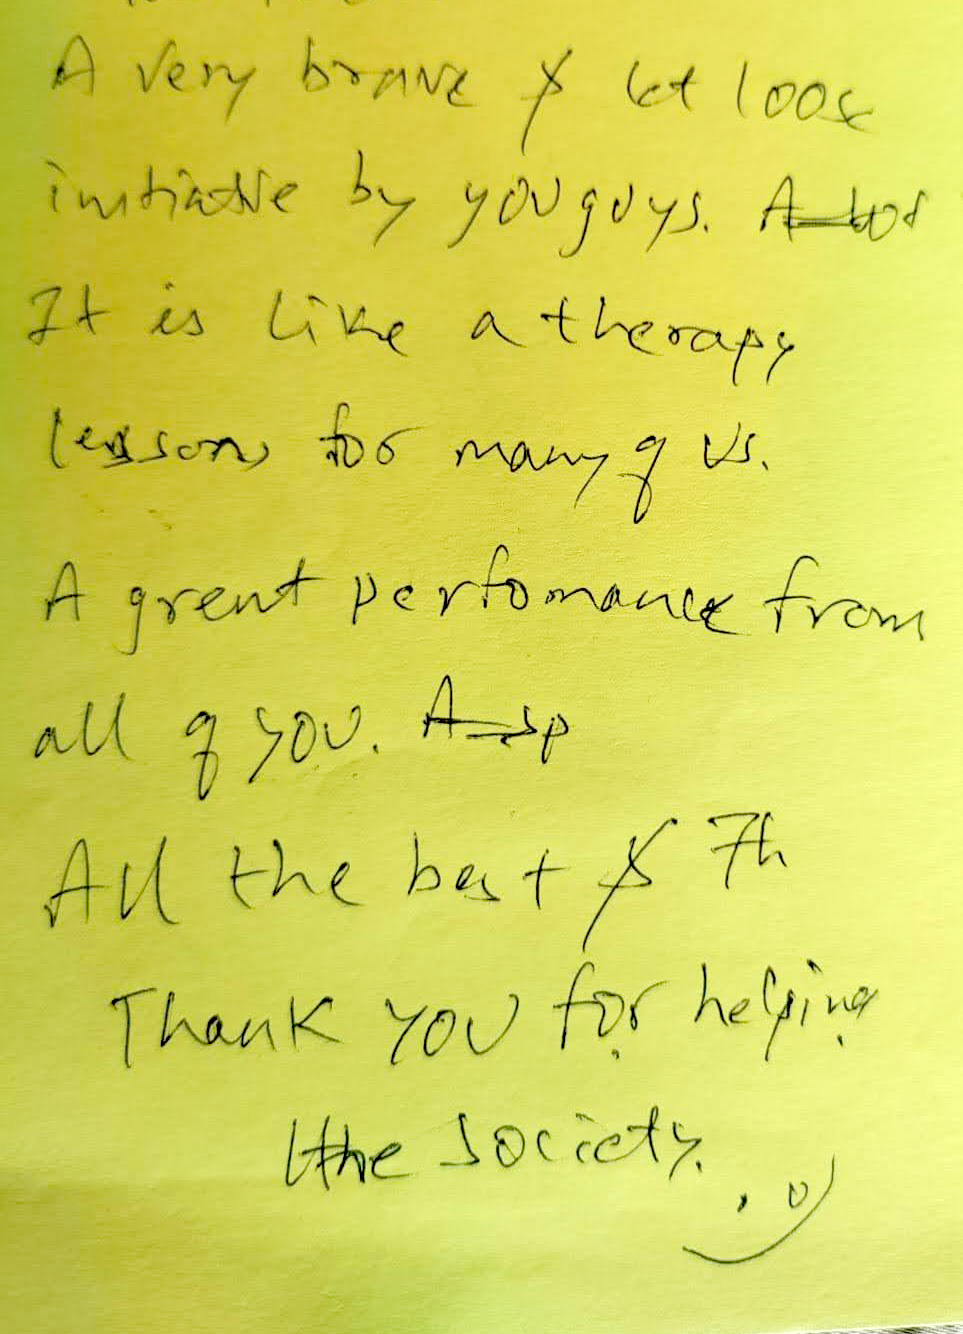 A very brave & let loose
initiative by you guys. A lot
It is like a therapy
lesson, for many of us.
A great perfomance from
all of you. A sp
All the best & Th
Thank you for helping
the society.